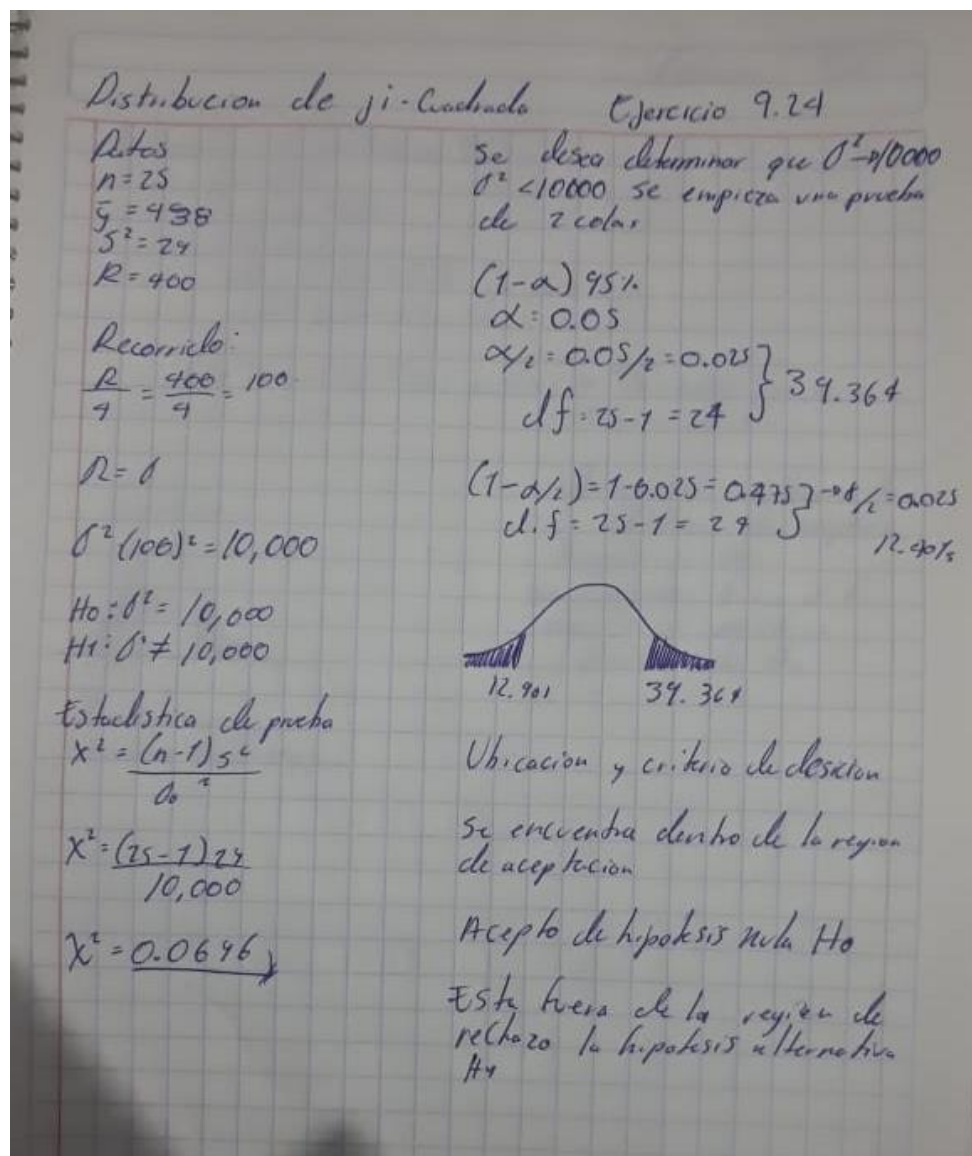 Distribucion de ji-Cuadrada Ejercicio 9.24
Datos
n=25
ȳ = 498
S² = 24
R = 400
Recorrido:
R/4 = 400/4 = 100
R = σ
σ² (100)² = 10,000
Ho: σ² = 10,000
H1: σ² ≠ 10,000
Estadistica de prueba
X² = (n-1)s² / σo²
X² = (25-1)24 / 10,000
X² = 0.0646
Se desea determinar que σ² → 10000
σ² < 10000 se empieza una prueba
de 2 colas
(1-α) 95%
α = 0.05
α/2 = 0.05/2 = 0.025 } 39.364
df = 25-1 = 24
(1-α/2) = 1-0.025 = 0.975 } → /2 = 0.025
d.f = 25-1 = 24
12.401 39.364
Ubicacion y criterio de desicion
Se encuentra dentro de la region
de aceptacion
Acepto de hipotesis nula Ho
Esta fuera de la region de
rechazo la hipotesis alternativa
H1